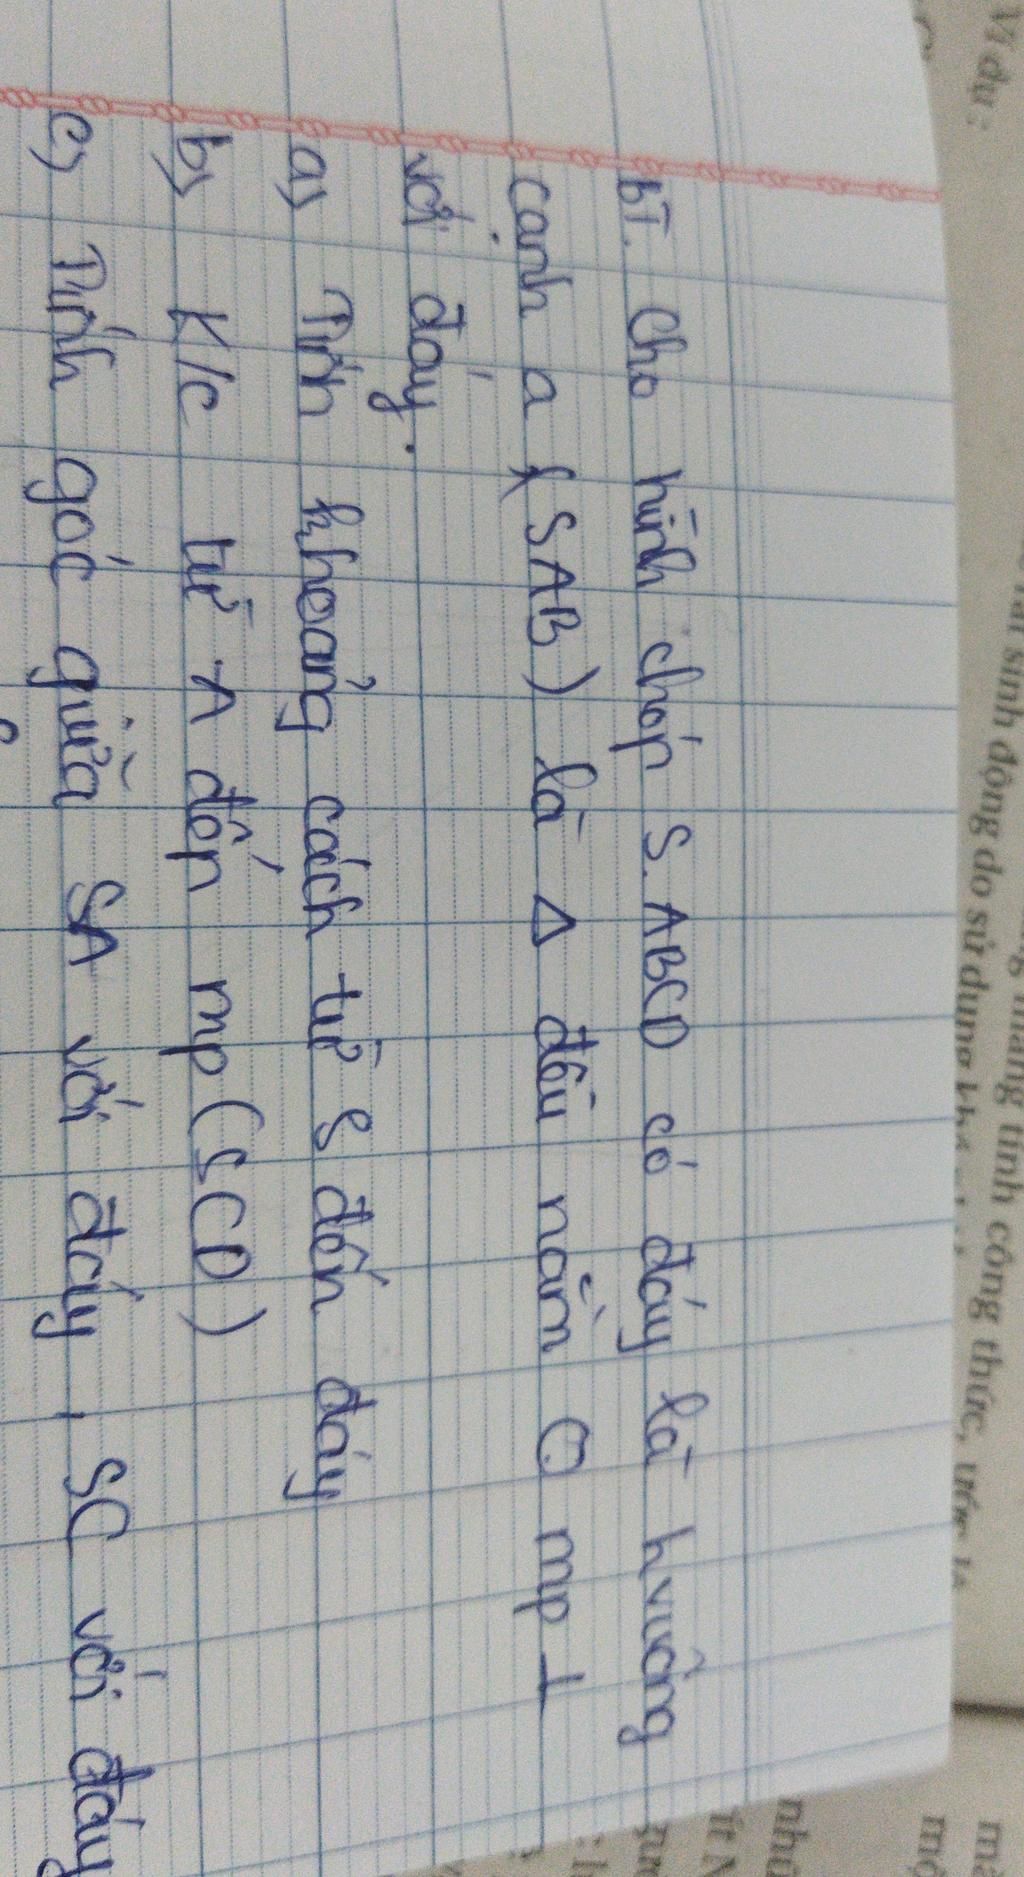 BT. Cho hình chóp S.ABCD có đáy là hvuông
cạnh a (SAB) là Δ đều nằm mp ⊥
với đáy.
a) Tính khoảng cách từ S đến đáy
b) K/c từ A đến mp (SCD)
c) Tính góc giữa SA với đáy, SC với đáy
Ví dụ:
sinh động do sử dụng
tính công thức, ước